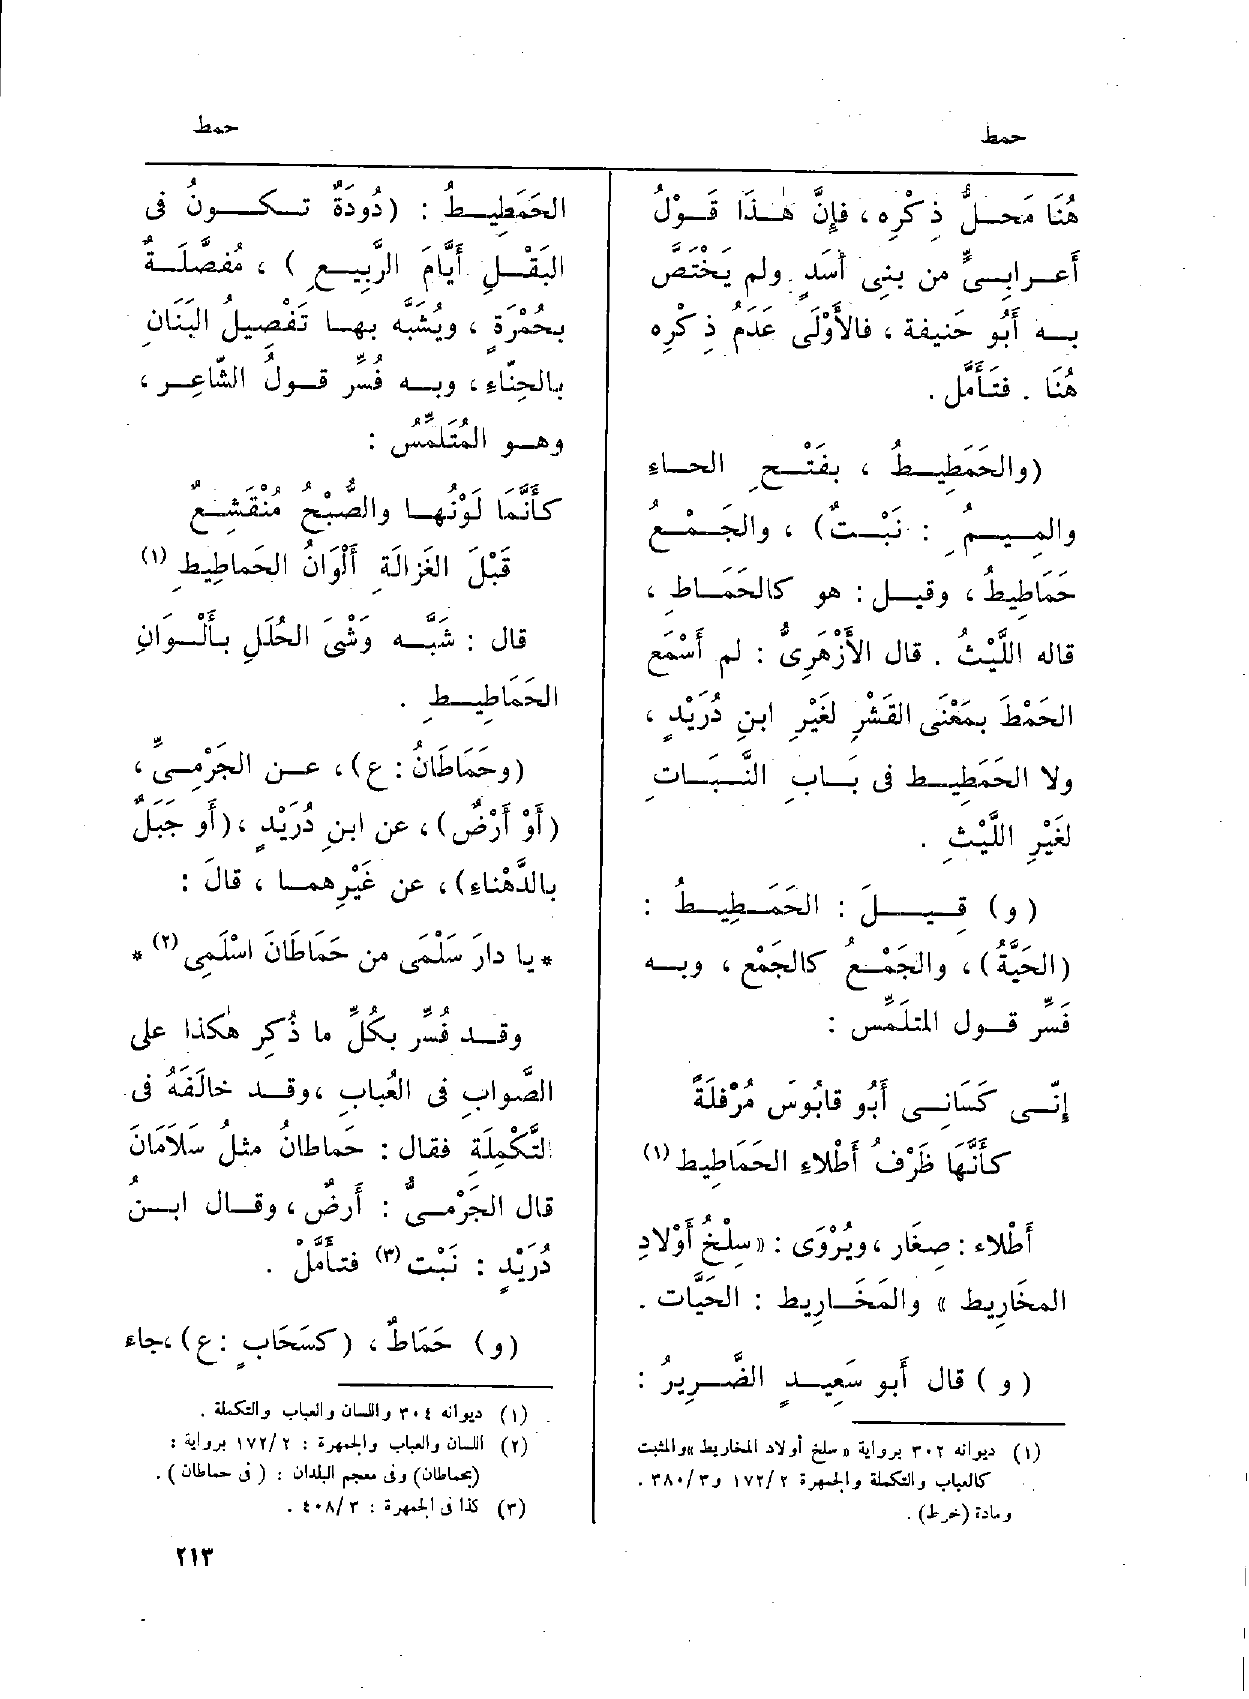 حمط
حمط
هُنَا مَحلُّ ذِكْرِه، فإِنَّ هٰذا قَوْلُ
أَعرابىٍّ من بنِى أَسَدٍ ولم يَخْتَصّ
به أَبُو حَنِيفة، فالأَوْلَى عَدَمُ ذِكْرِه
هُنَا . فتَأَمَّل .
(والحَمَطِيطُ ، بفَتْحِ الحاء
والمِيمِ : نَبْتٌ) ، والجَمْعُ
حَمَاطِيطُ، وقيل: هو كالحَمَاطِ ،
قاله اللَّيْثُ . قال الأَزْهَرِىُّ : لم أَسْمَعِ
الحَمْطَ بمَعْنَى القَشْرِ لغَيْرِ ابنِ دُرَيْدٍ ،
ولا الحَمَطِيط فى بَابِ النَّبَاتِ
لغَيْرِ اللَّيْثِ .
(و) قِيلَ : الحَمَطِيطُ :
(الحَيَّةُ)، والجَمْعُ كالجَمْعِ ، وبه
فَسَّر قول المتلَمِّس :
إِنِّى كَسَانِى أَبُو قابُوسَ مُرْفَلَةً
كأَنَّهَا ظَرْفُ أَطْلاءِ الحَمَاطِيط (١)
أَطْلاء : صِغَار ، ويُرْوَى : «سِلْخُ أَوْلادِ
المخَارِيط » والمَخَارِيط : الحَيَّات .
( و ) قال أَبو سَعِيدٍ الضَّرِيرُ :
(١) ديوانه ٣٠٢ برواية «سلخ أولاد المخاريط» والمثبت
كالعباب والتكملة والجمهرة ١٧٢/٢ و٣٨٠/٣ .
ومادة (خرط) .
الحَمَطِيطُ : (دُودَةٌ تكونُ فى
البَقْلِ أَيَّامَ الرَّبِيعِ ) ، مُفصَّلَةٌ
بحُمْرَةٍ ، ويُشَبَّه بها تَفْصِيلُ البَنَانِ
بالحِنّاءِ، وبه فُسِّر قولُ الشّاعِر ،
وهو المُتَلَمِّسُ :
كأَنَّمَا لَوْنُها والصُّبْحُ مُنْقَشِعٌ
قَبْلَ الغَزالَةِ أَلْوَانُ الحَماطِيطِ (١)
قال : شَبَّه وَشْىَ الحُلَلِ بأَلْوَانِ
الحَمَاطِيطِ .
(وحَمَاطَانُ : ع)، عن الجَرْمِىِّ ،
(أَوْ أَرْضٌ) ، عن ابنِ دُرَيْدٍ ، (أَو جَبَلٌ
بالدَّهْناءِ) ، عن غَيْرِهما ، قالَ :
* يا دارَ سَلْمَى من حَمَاطَانَ اسْلَمِى (٢) *
وقد فُسِّر بكُلِّ ما ذُكِر هٰكذا على
الصَّوابِ فى العُبابِ ، وقد خالَفَهُ فى
التَّكْمِلَةِ فقال : حَماطانُ مثلُ سَلَامَانَ
قال الجَرْمىُّ : أَرضٌ ، وقال ابنُ
دُرَيْدٍ : نَبْت (٣) فتأَمَّلْ .
(و) حَمَاطٌ ، (كسَحَابٍ : ع)، جاء
(١) ديوانه ٣٠٤ واللسان والعباب والتكملة .
(٢) اللسان والعباب والجمهرة : ١٧٢/٢ برواية :
(بحماطان) وفى معجم البلدان : ( فى حماطان ) .
(٣) كذا فى الجمهرة : ٤٠٨/٣ .
٢١٣